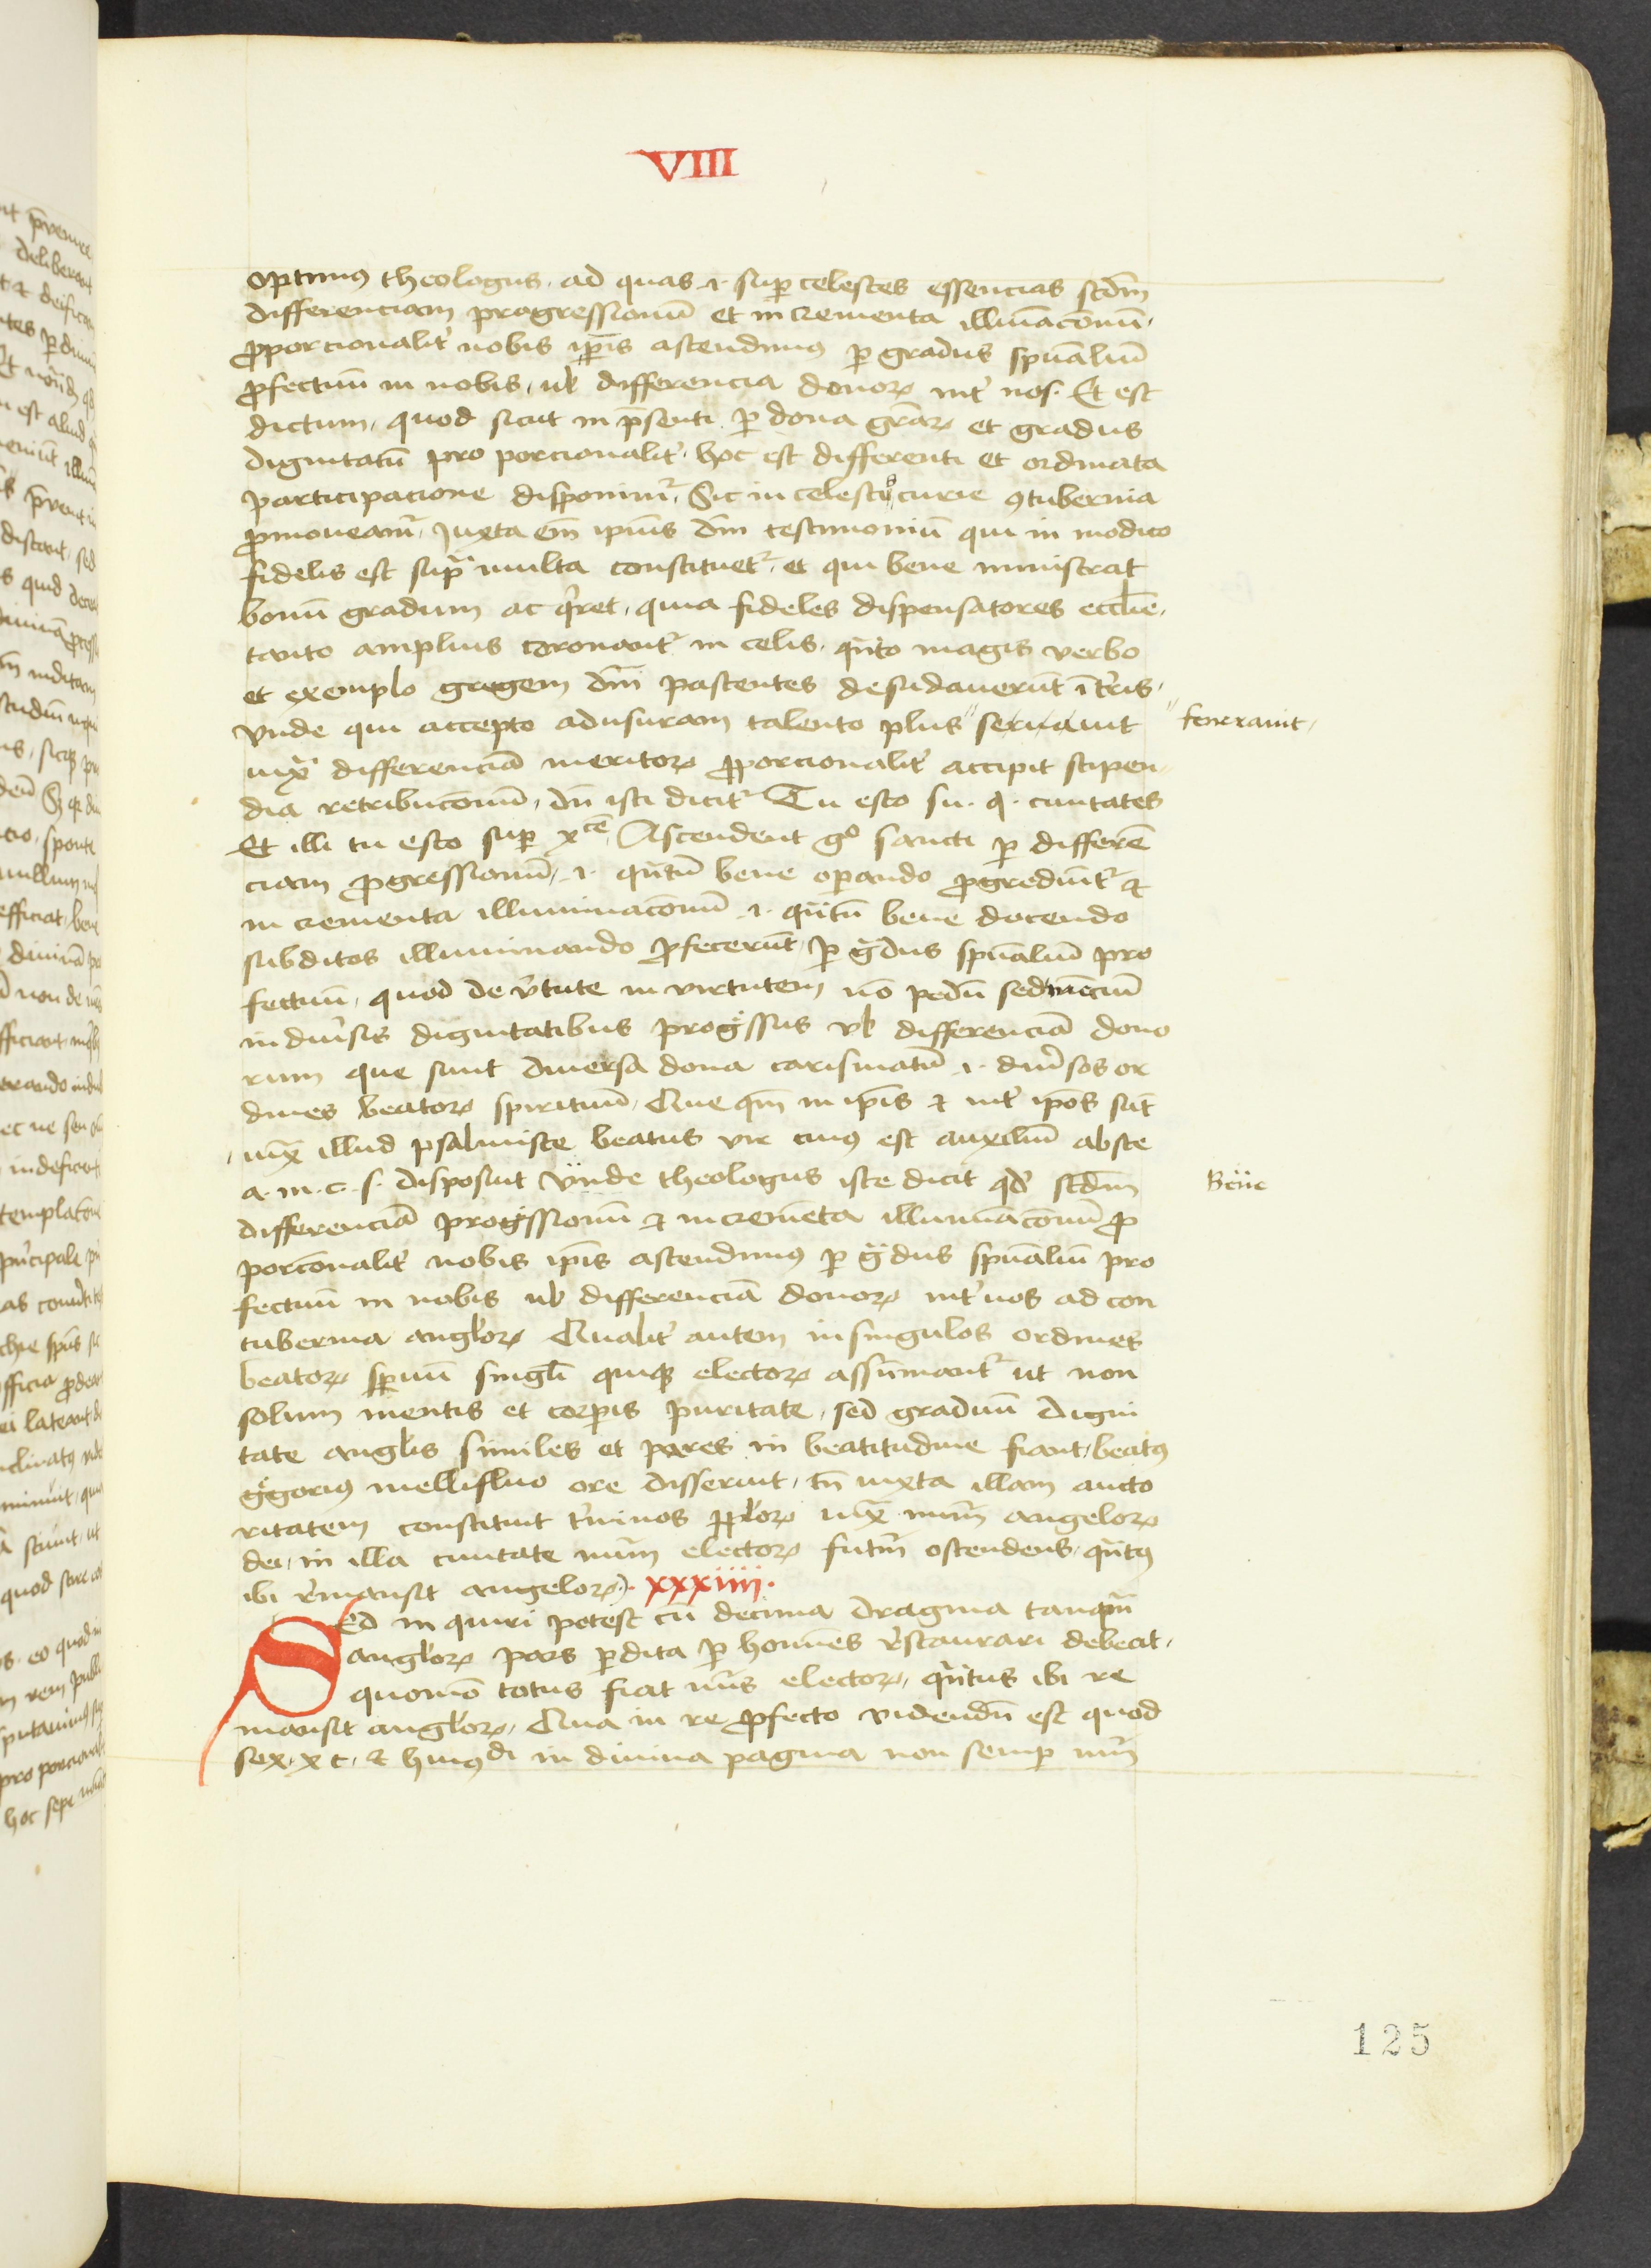 VIII
optimꝯ theologus. ad quas .i. suꝑ celestes essencias scd̄m
differenciam progressionū et in crementa illuīacōnū.
ꝓporcionalit̾ nobis ip̄is ascendimꝯ ꝑ gradus spūaliū
ꝓfectuū in nobis, uł differencia donoꝝ int̾ nos. Et est
dictum, quod sicut in p̄senti ꝑ dona gr̄aꝝ et gradus
dignitatū pro porcionalit̾. hoc est differenti et ordinata
participacione disponimr̾. Sic in celestis curie ꝯtubernia
ꝓmoueamr̾. Juxta em̄ ipīus dn̄i testimoniū qui in modico
fidelis est supͣ multa constituetr̾. et qui bene ministrat
bonū gradum ac q̾ret, quia fideles dispensatores eccl̄ie.
tanto amplius coronantr̾ in celis. qͣnto magis verbo
et exemplo gregem dn̄i pascentes desudauerūt ī t̾ris.
Vnde qui accepto adusuram talento plus seruauit
feneravit,
iuxͣ differenciā meritoꝝ ꝓporcionalit̾ accipit stipen
dia retribucōnū, dū isti dicitr̾ Tu esto su. q. ciuitates
Et illi tu esto suꝑ x cē. Ascendent gͦ sancti ꝑ differē
ciam ꝓgressionū, .i. qͣntū bene oꝑando ꝓgrediūtr̾ ⁊
in crementa illuminacōnū .i. qͣntū bene docendo
subditos illuminando ꝓfecerūt, ꝑ gͣdus spūaliū pro
fectuū, quod de v̾tute in virtutem nō pedū sed menciū
in diu̾sis dignitatibus progͤssus uł differenciā dono
rum que sunt diuersa dona carismatū .i. diu̾sos or
dines beatoꝝ spirituū. Que qm̄ in ip̄is ⁊ int̾ ip̄os sūt
iuxͣ illud psalmiste beatus vir cuiꝯ est auxiliū abste
a. in. c. s. disposuit Vnde theologus iste dicit qd̾ scd̄m
differenciā progͤssionū ⁊ incremēta illuminacōnū ꝓ
porcōnalit̾ nobis ip̄is ascendimꝯ ꝑ gͣdus spūaliū pro
fectuū in nobis uł differenciā donoꝝ int̾ nos ad con
tubernia angl̾oꝝ Qualit̾ autem in singulos ordines
beatoꝝ sp̄uū singl̄i quiqꝫ electoꝝ assūmantr̾ ut non
solum mentis et corꝑis puritate, sed graduū digni
tate angl̾is similes et pares in beatitudine fiant, beatꝯ
gͤgoriꝯ mellifluo ore disseruit, tn̄ iuxta illam aucto
ritatem constituit t̾minos pp̄l̾oꝝ iuxͣ num̄ angeloꝝ
dei, in illa ciuitate num̄ electoꝝ futm̄ ostendens, qͣntꝯ
ibi r̾mansit angeloꝝ. xxxiiii.
Sed in quiri potest cū decima dragma tanqͣm
angl̾oꝝ pars ꝑdita ꝑ homīes r̾staurari debeat,
quomō totus fiat nūs electoꝝ, qͣntus ibi re
mansit angl̾oꝝ. Qua in re ꝓfecto videndū est quod
sex. x c, ⁊ hmꝯdi in diuina pagina non semꝑ num̄
125